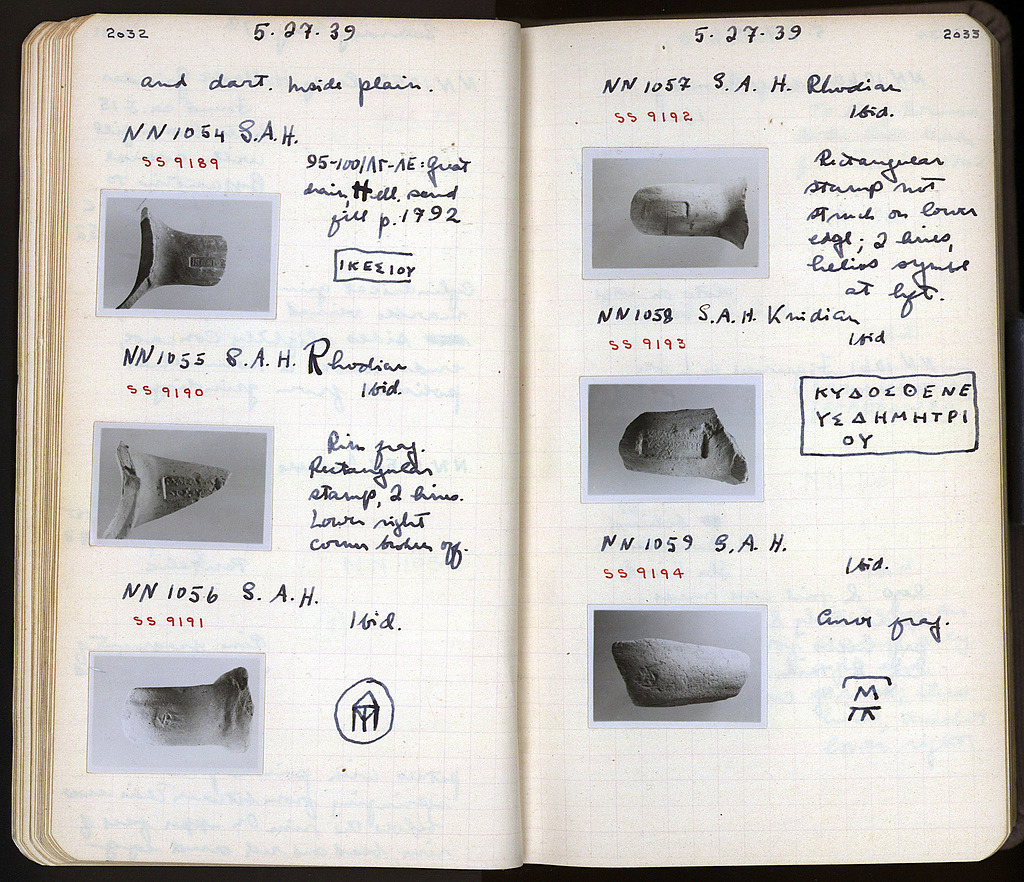 2032
5·27·39
and dart. Inside plain.
NN 1054 S.A.H.
SS 9189
95-100/ΛΓ-ΛΕ: Great
drain, Hell. sand
fill p. 1792
ΙΚΕΣΙΟΥ
NN 1055 S.A.H. Rhodian
SS 9190
Ibid.
Rim frag.
Rectangular
stamp, 2 lines.
Lower right
corner broken off.
NN 1056 S.A.H.
SS 9191
Ibid.
5·27·39
2033
NN 1057 S.A.H. Rhodian
SS 9192
Ibid.
Rectangular
stamp not
struck on lower
edge; 2 lines,
helios symbol
at left.
NN 1058 S.A.H. Knidian
SS 9193
Ibid
ΚΥΔΟΣΘΕΝΕ
ΥΣΔΗΜΗΤΡΙ
ΟΥ
NN 1059 S.A.H.
SS 9194
Ibid.
Curve frag.